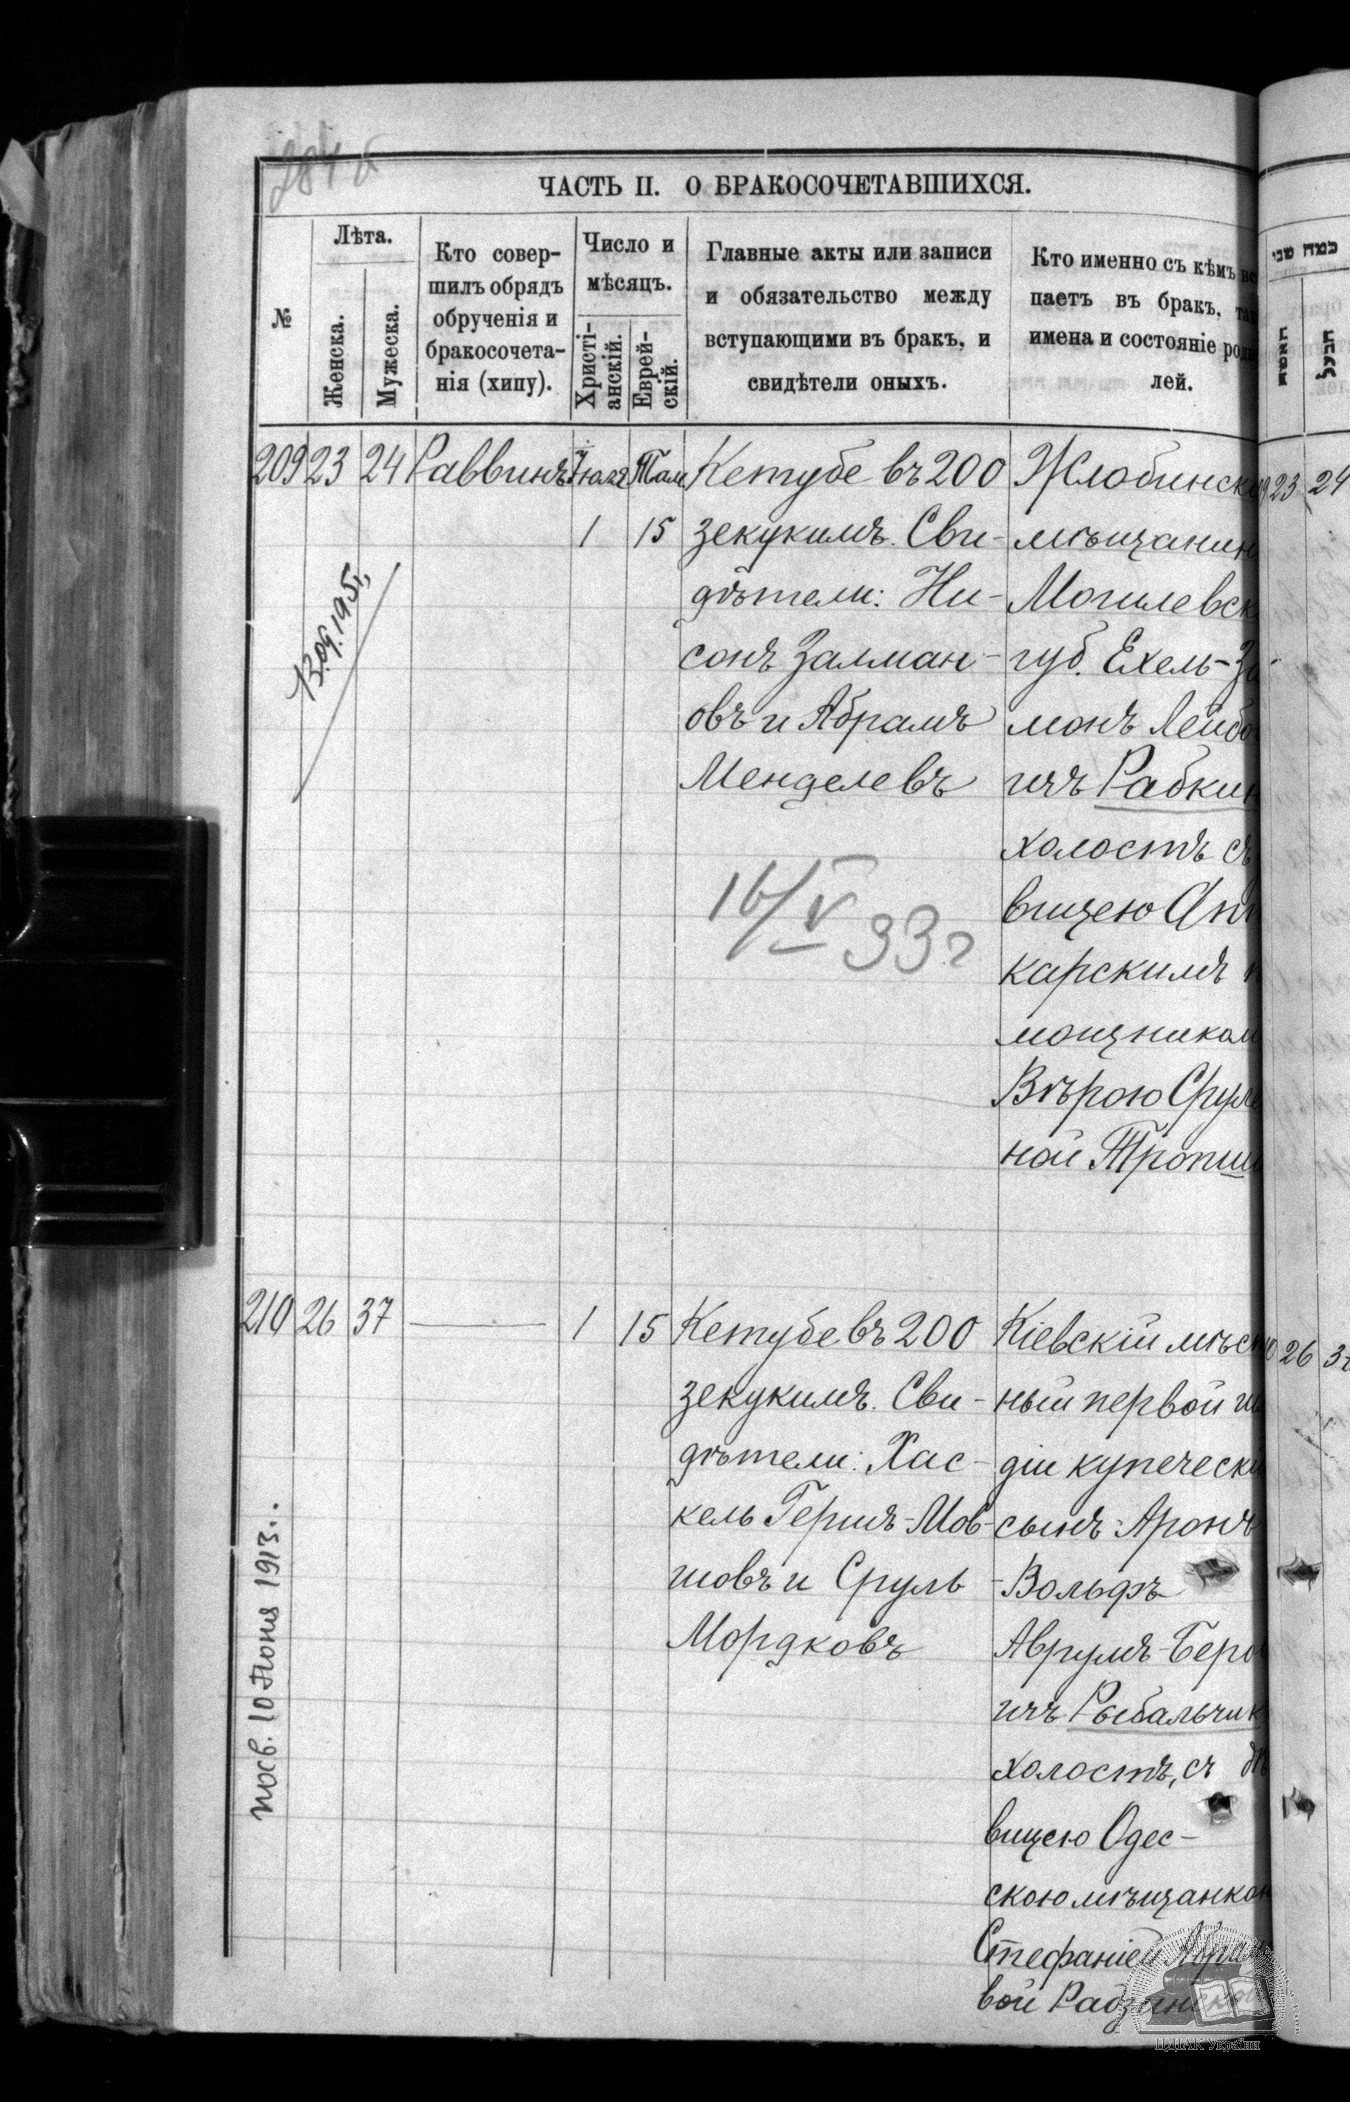 284 б
ЧАСТЬ II. О БРАКОСОЧЕТАВШИХСЯ.
№
Лѣта.
Женска.
Мужеска.
Кто совер-
шилъ обрядъ
обрученія и
бракосочета-
нія (хипу).
Число и
мѣсяцъ.
Христі-
анскій.
Еврей-
скій.
Главные акты или записи
и обязательство между
вступающими въ бракъ, и
свидѣтели оныхъ.
Кто именно съ кѣмъ вс
паетъ въ бракъ, та
имена и состояніе род
лей.
209 23 24 Раввинъ Іюля Там
1 15
Кетубе въ 200
зекукимъ. Сви-
дѣтели: Ни-
сонъ Залман-
овъ и Абрамъ
Менделевъ
Жлобинск
мѣщанин
Могилевск
губ. Ехель-З
монъ Лейбо
ичъ Рабкин
холостъ съ
вицею Ап
карскимъ п
мощником
Вѣрою Срул
ной Тропи
16/V 33 г
210 26 37 — 1 15
Кетубе въ 200
зекукимъ. Сви-
дѣтели: Хас-
кель Гершъ-Мов-
шовъ и Сруль
Мордковъ
Кіевскій мѣст
ный первой ги
діи купеческі
сынъ Аронъ
-Вольфъ
Аврумъ-Беро
ичъ Рыбальчик
холостъ, съ дѣ
вицею Одес-
скою мѣщанкою
Стефаніей Абрам
вой Радзинской
посв. 10 Июня 1913.
23 24
26 3
ЦДІАК України